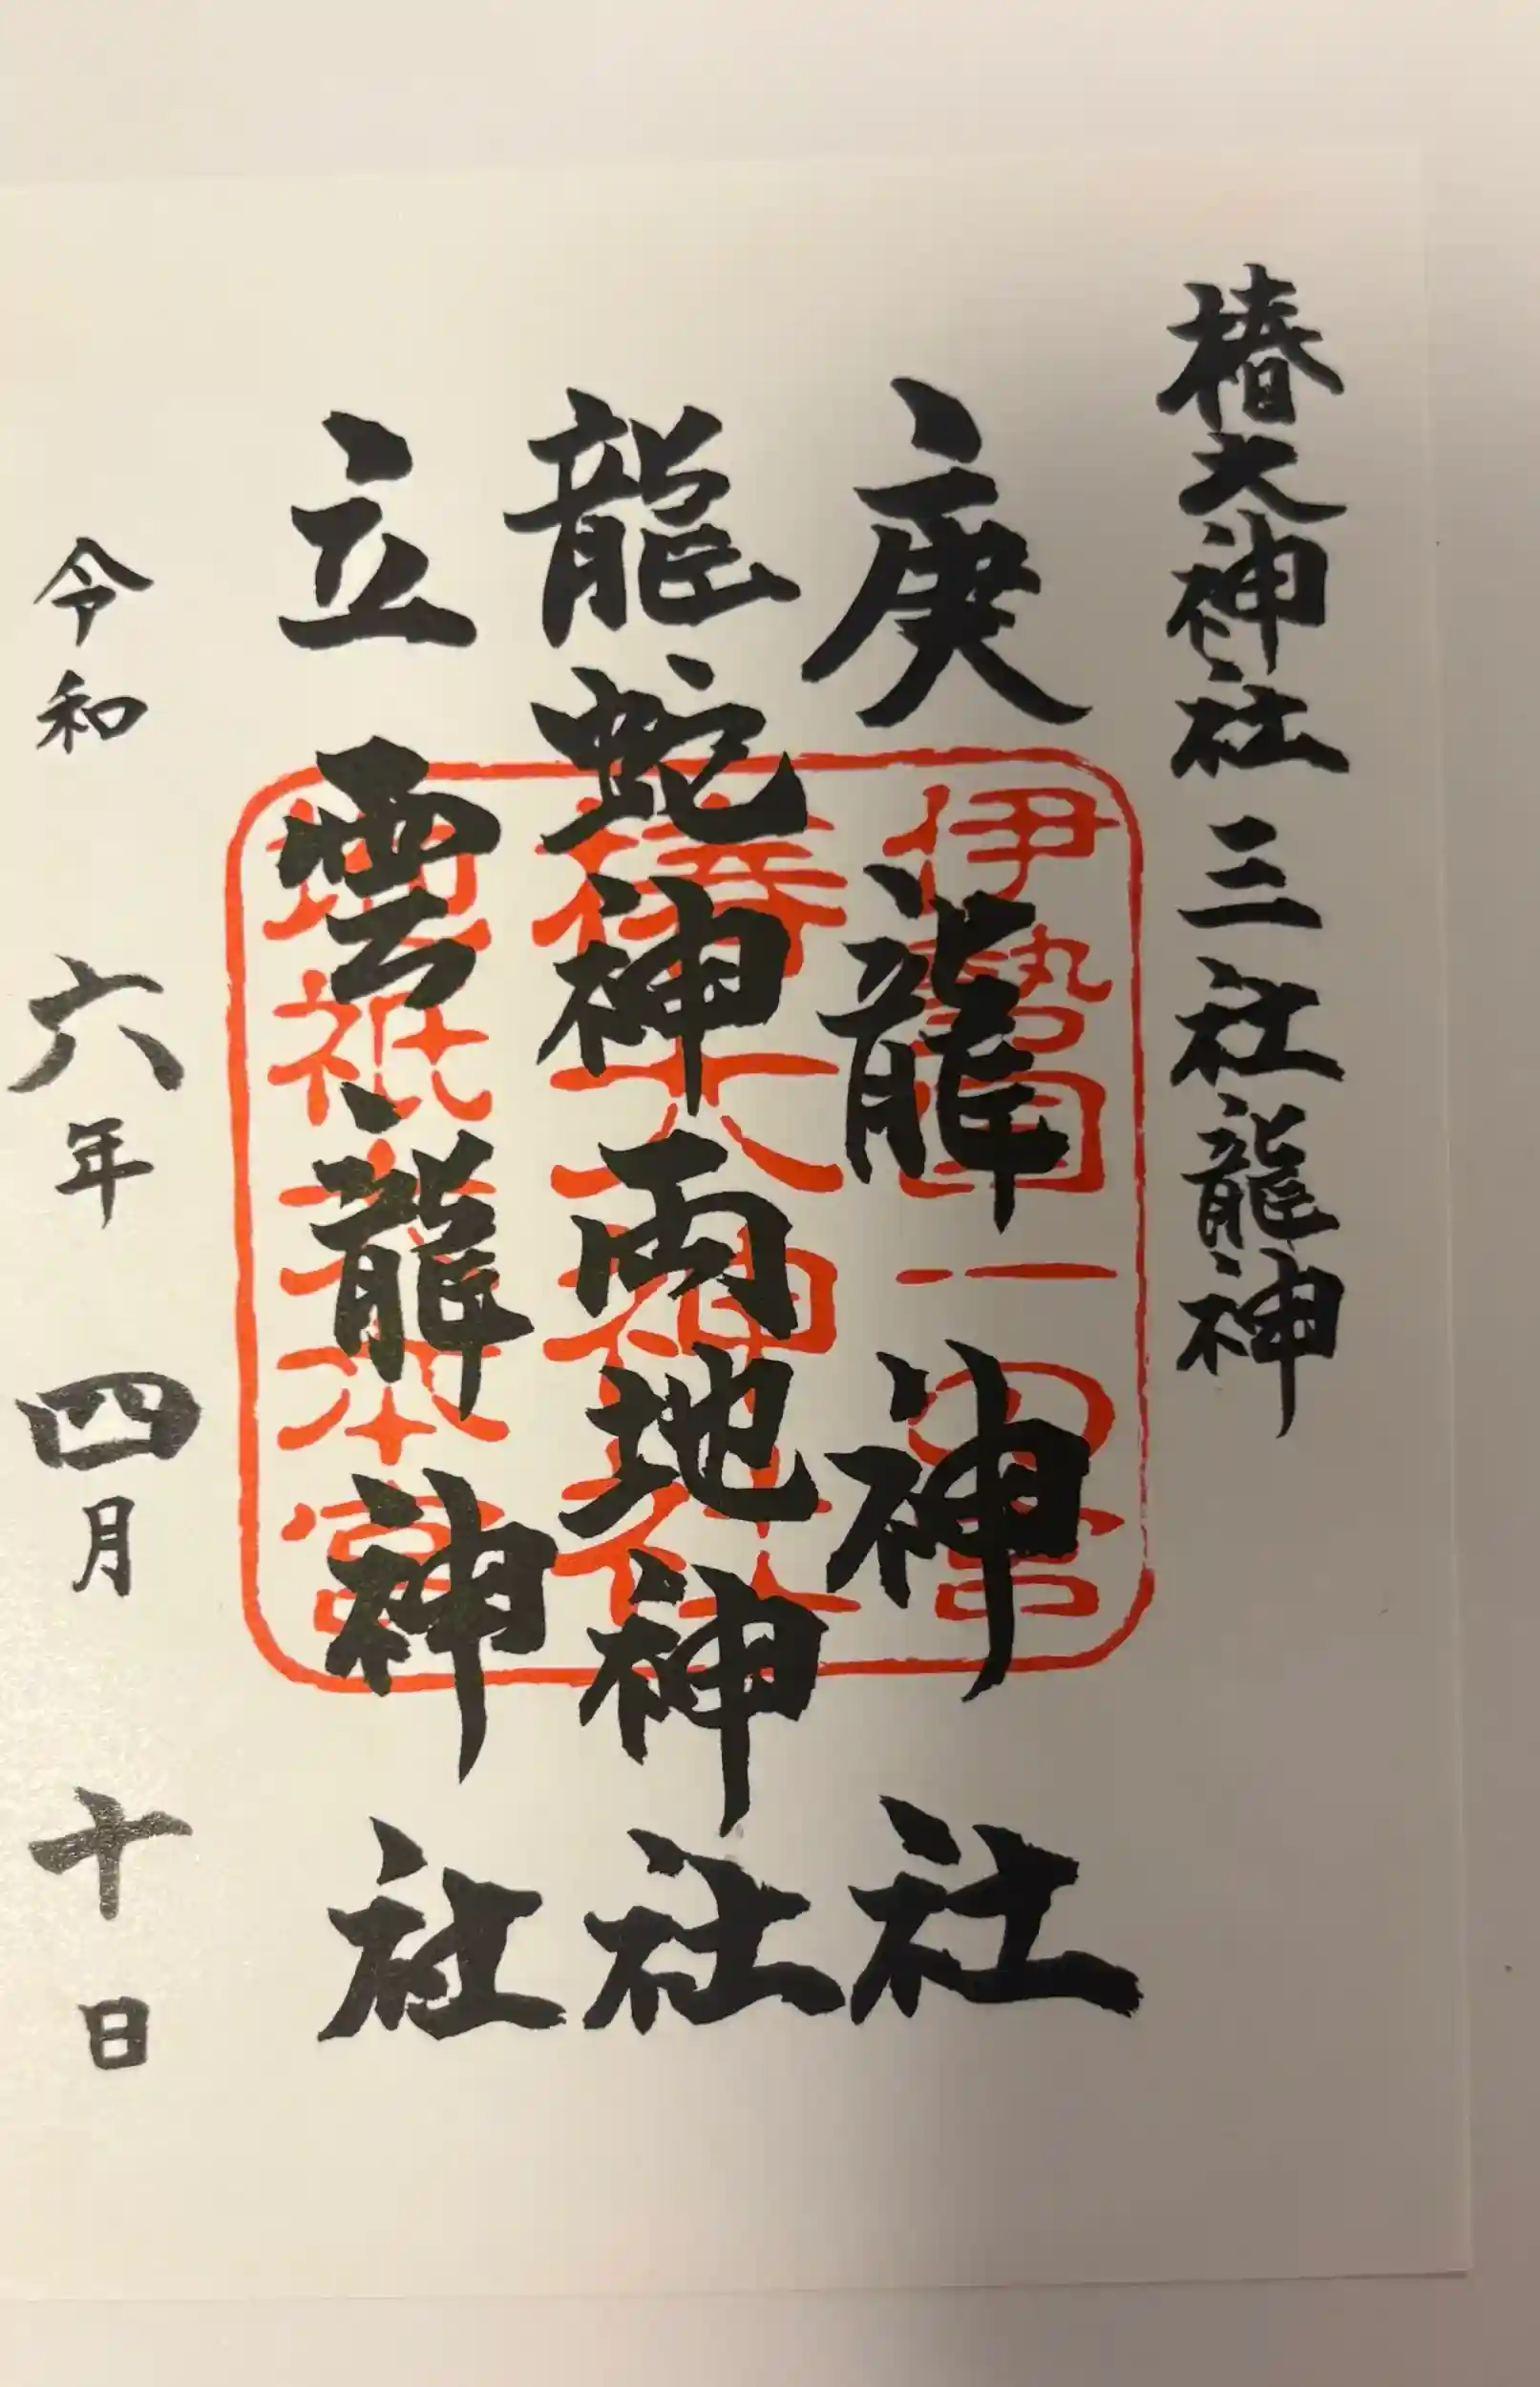 椿大神社 三社龍神
庚龍神社
龍蛇神両地神社
立雲龍神社
令和六年四月十日
伊勢国一の宮
椿大神社
地祇大本宮